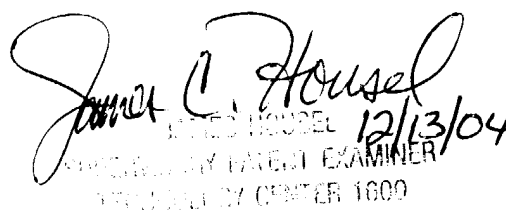 James C. Housel
JAMES HOUSEL 12/13/04
SUPERVISORY PATENT EXAMINER
TECHNOLOGY CENTER 1600